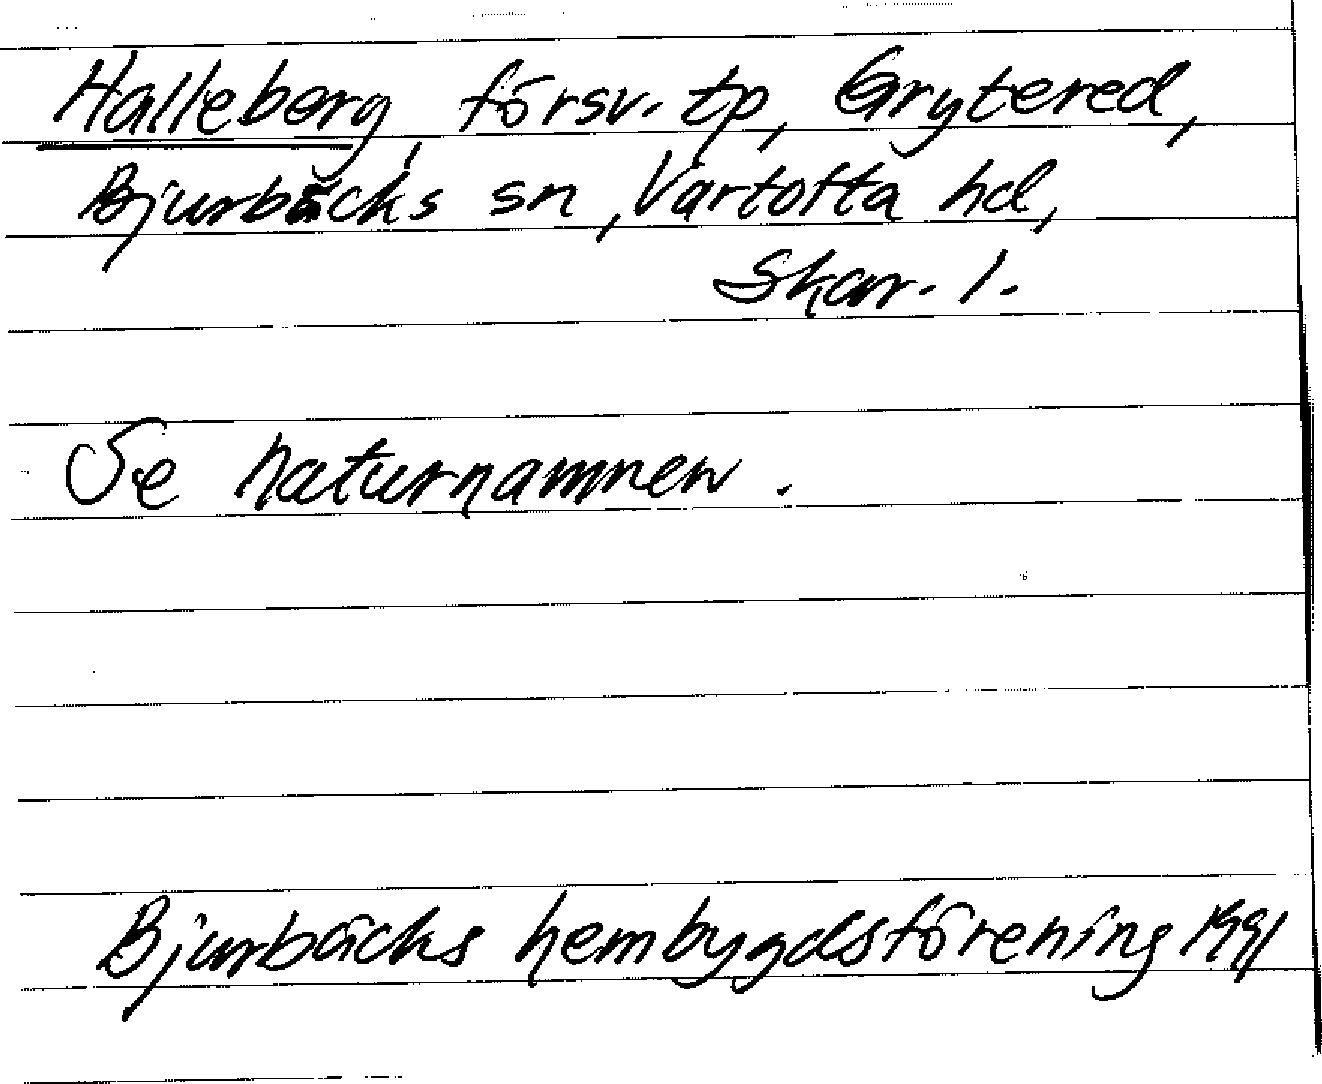 Halleberg, försv. tp, Grytered,
Bjurbäcks sn, Vartofta hd,
Skar. l.
Se naturnamnen.
Bjurbäcks hembygdsförening 1991